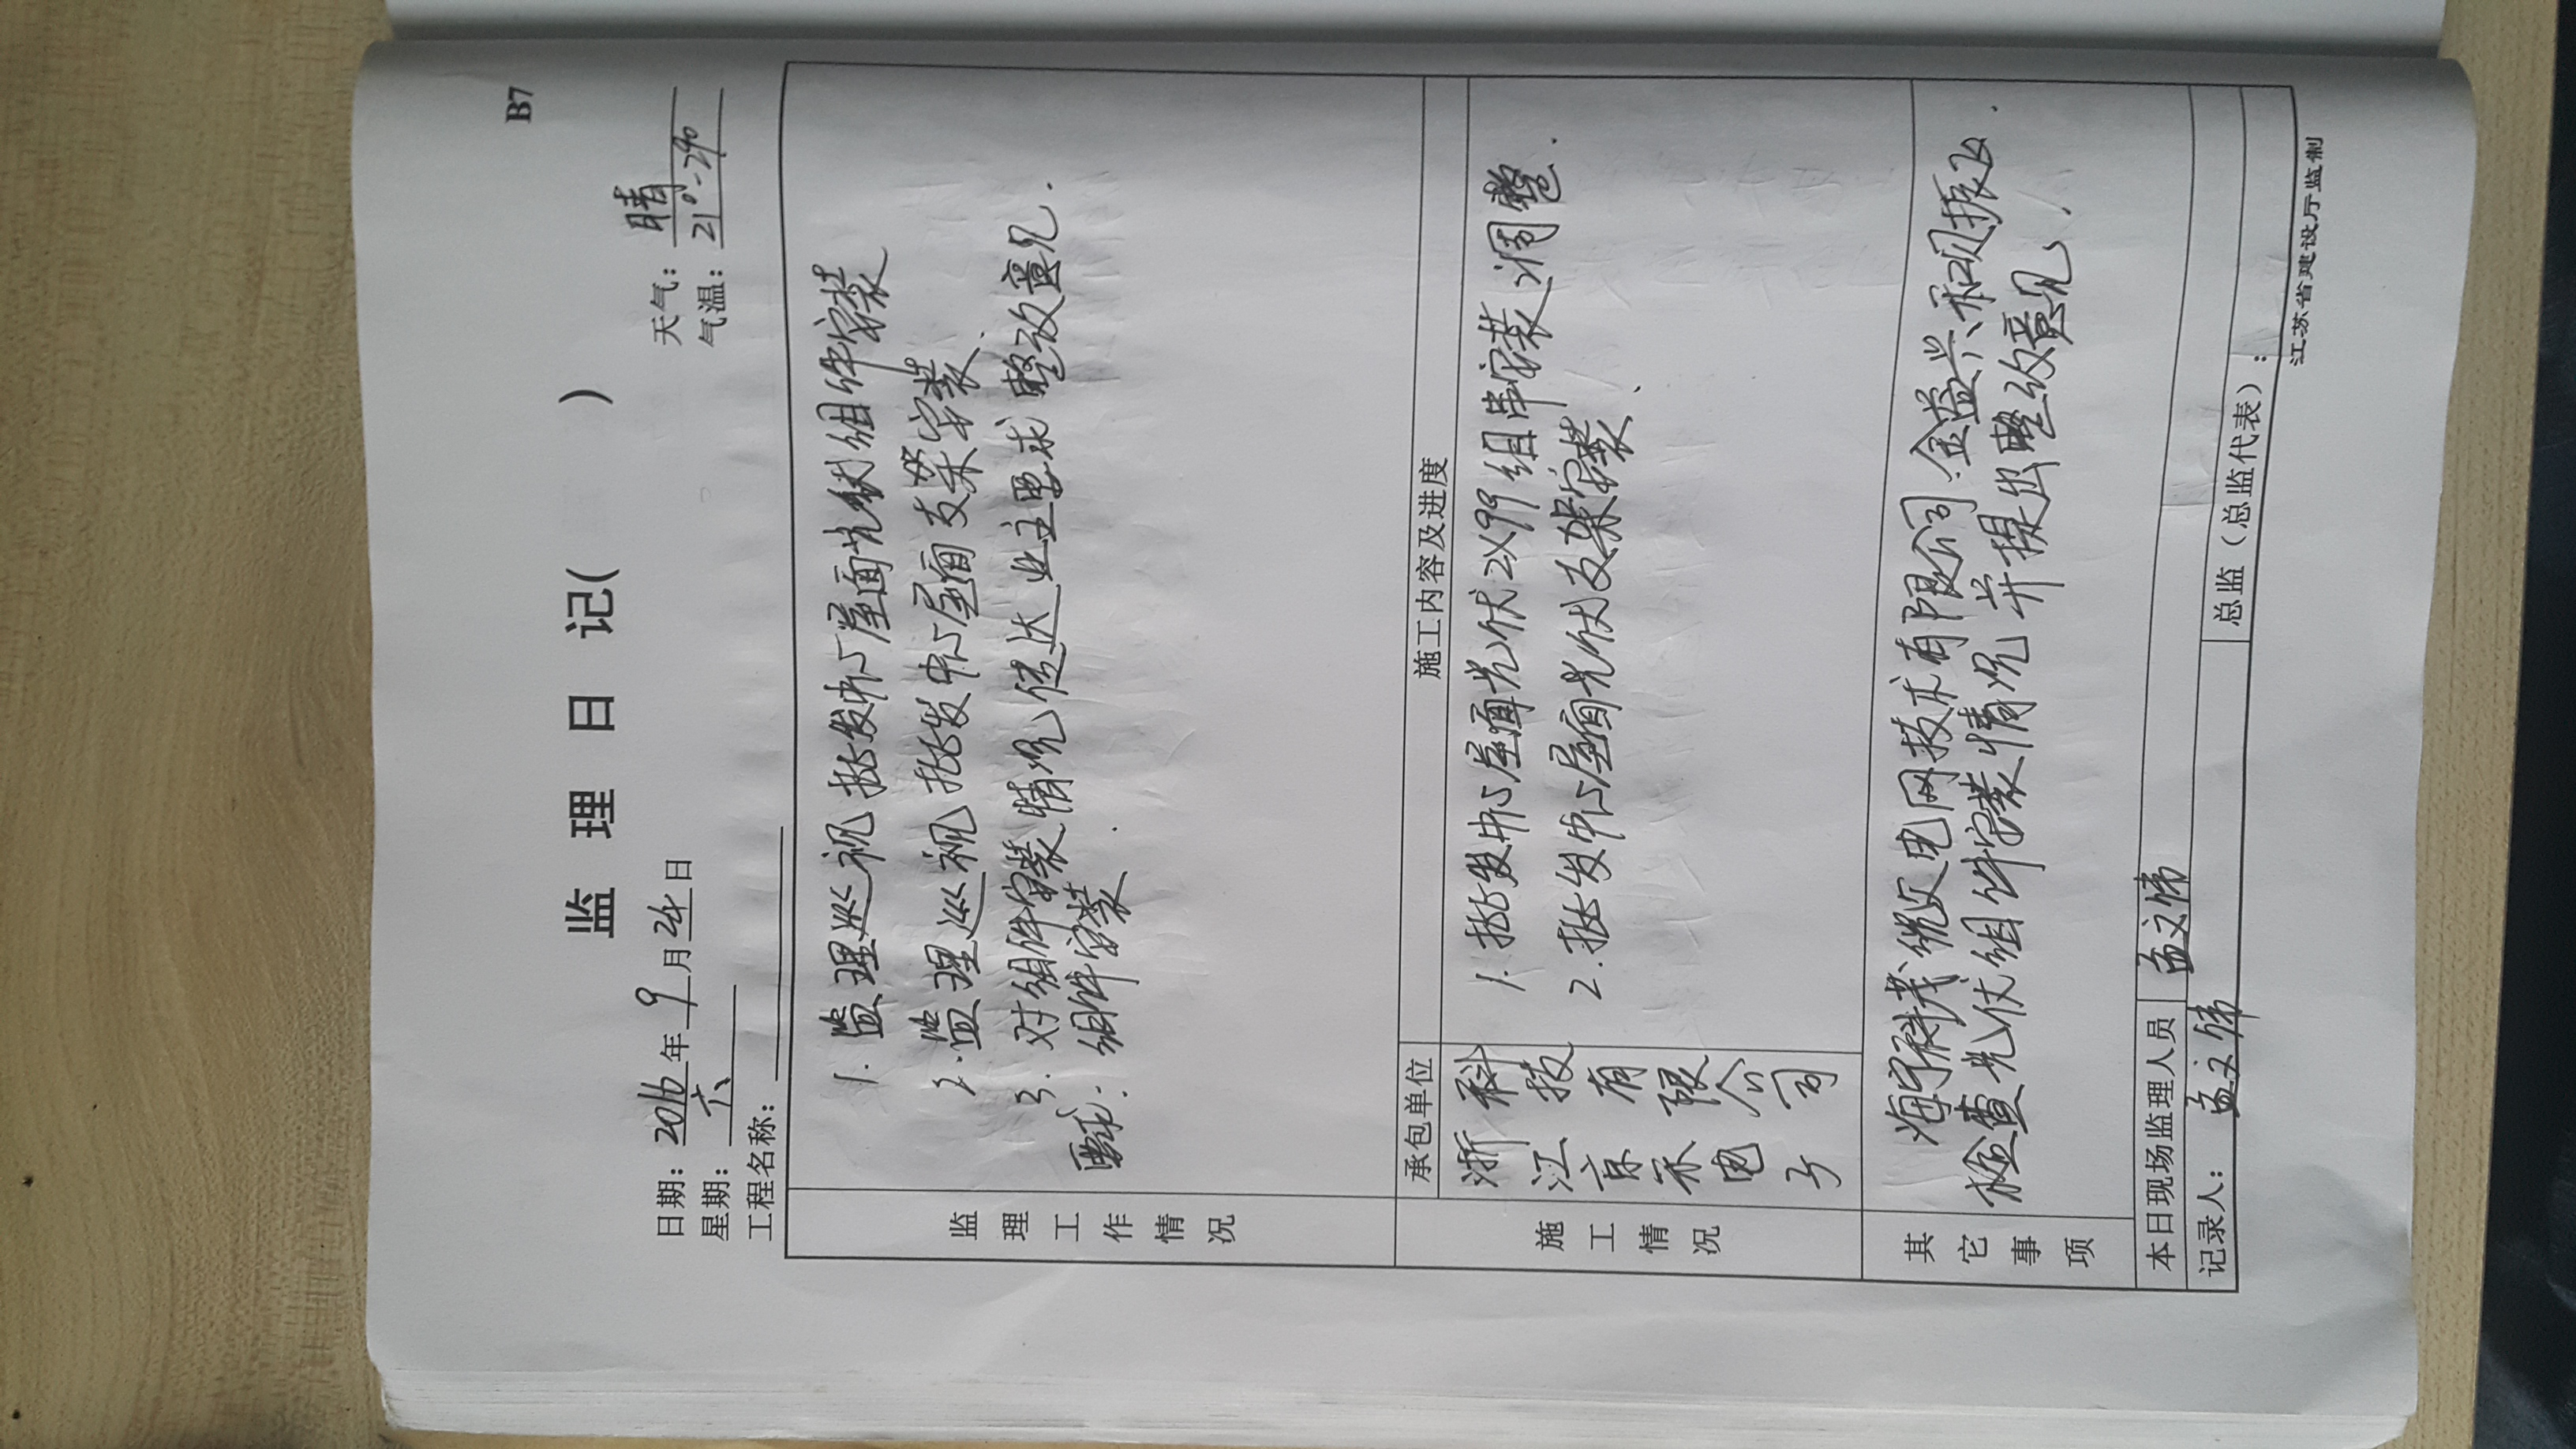 B7
监 理 日 记( )
日期：2016年9月24日 天气：晴
星期：六 气温：21°-29°
工程名称：
监理工作情况
1. 监理巡视批发中心屋面光伏组件安装
2. 监理巡视批发中心屋面支架安装.
3. 对组件安装情况传达业主要求整改意见.
组件安装.
施工情况
承包单位 施工内容及进度
浙江京禾电子科技有限公司
1. 批发中心屋面光伏2x99组串安装调整.
2. 批发中心屋面光伏支架安装.
其它事项
海宁科茂微电网技术有限公司金益兴和项振飞.
检查光伏组件安装情况并提出整改意见.
本日现场监理人员 孟文伟
记录人：孟文伟 总监（总监代表）：
江苏省建设厅监制